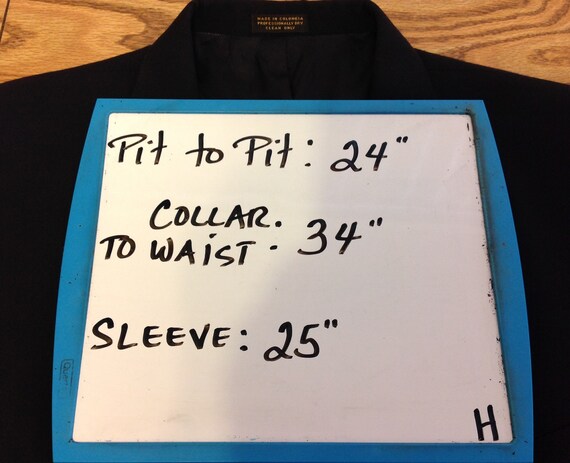 MADE IN COLOMBIA
PROFESSIONALLY DRY
CLEAN ONLY
Pit to Pit: 24"
COLLAR.
TO WAIST - 34"
SLEEVE: 25"
H